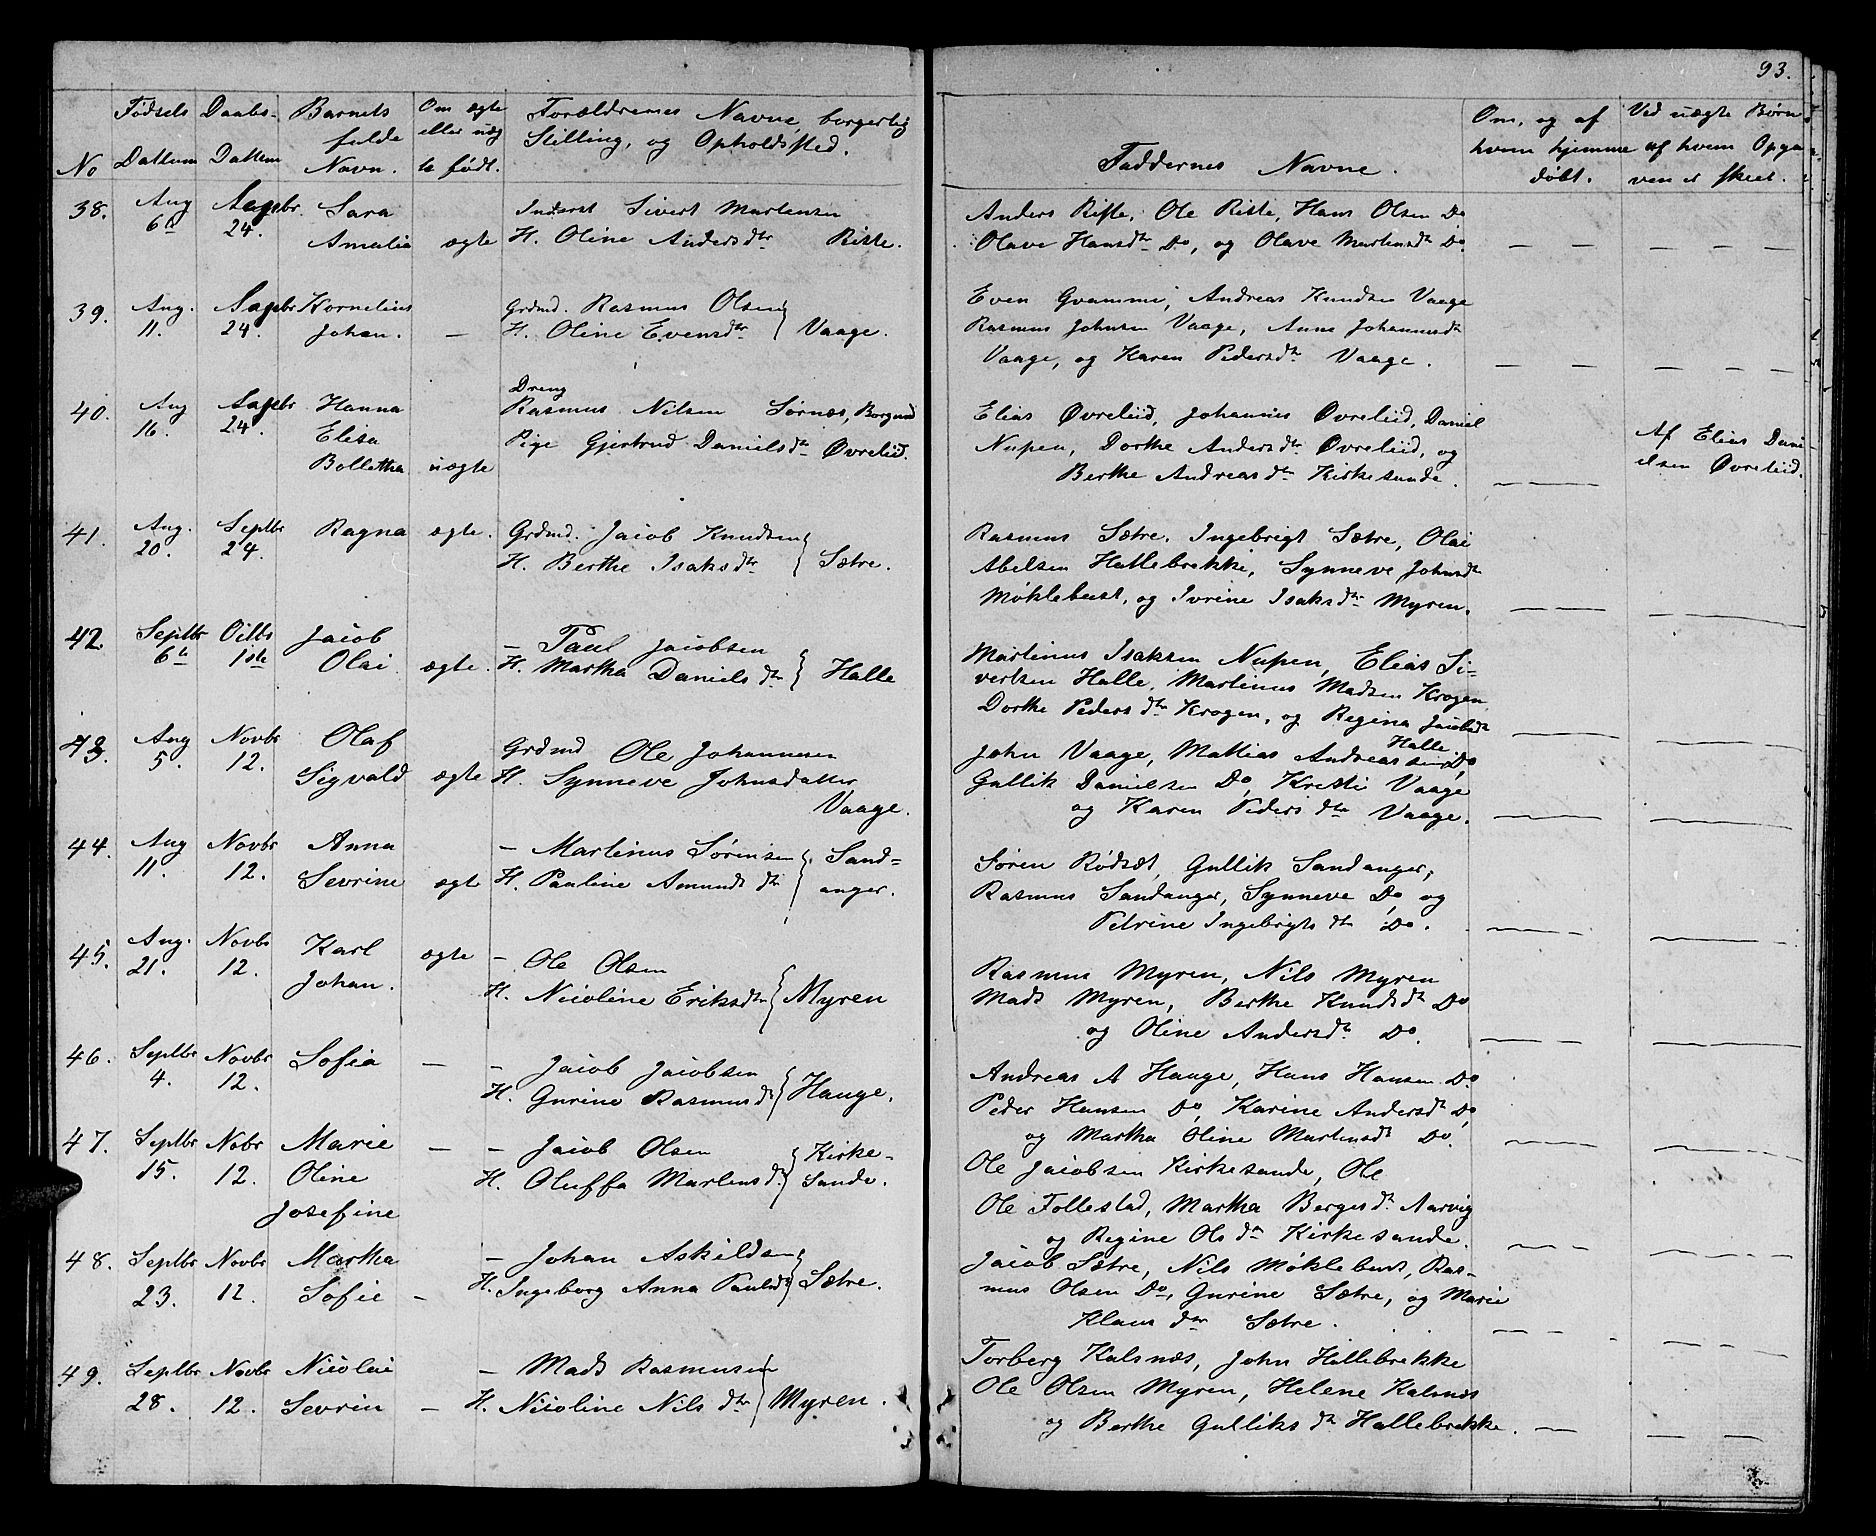 93.
No
Fødsels Dattum
Daabs- Dattum
Barnets fulde Navn.
Om ægte eller uægte født.
Forældrenes Navne, borgerlig Stilling, og Opholdsted.
Faddernes Navne.
Om, og af hvem hjemme døbt.
Ved uægte Børn af hvem Opgaven er skeet.
38. Aug 6te Septbr. 24. Sara Amalia ægte
Inderst Sivert Martensen
H. Oline Andersdtr Riste.
Anders Riste, Ole Riste, Hans Olsen Do
Olave Hansdtr Do, og Olave Martensdtr Do.
39. Aug. 11. Septbr 24. Kornelius Johan. —
Grdmd. Rasmus Olsen
H. Oline Evensdtr } Vaage.
Even Gvamme, Andreas Knudsen Vaage
Rasmus Johnsen Vaage, Anne Johannesdtr
Vaage, og Karen Pedersdtr Vaage.
40. Aug 16. Septbr 24. Hanna Elisa Bolletha uægte
Dreng
Rasmus Nilsen Sørnæs, Borgund
Pige Gjertrud Danielsdtr Øvreliid.
Elias Øvreliid, Johannes Øvreliid, Daniel
Nupen, Dorthe Andersdtr Øvreliid, og
Berthe Andreasdtr Kirkesande.
Af Elias Dani-
elsen Øvreliid.
41. Aug. 20. Septbr 24. Ragna ægte.
Grdmd. Jacob Knudsen
H. Berthe Isaksdtr } Sætre.
Rasmus Sætre, Ingebrigt Sætre, Olai
Abelsen Hallebrekke, Synneve Johnsdtr
Møklebust, og Ivrine Isaksdtr Myren.
42. Septbr 6te Octbr 1ste Jacob Olai ægte.
— Paul Jacobsen
H. Martha Danielsdtr } Halle
Martinus Isaksen Nupen, Elias Si-
vertsen Halle, Martinus Madsen Krogen
Dorthe Pedersdtr Krogen, og Regina Jacobsdtr
Halle.
43. Aug 5. Novbr 12. Olaf Sigvald ægte
Grdmd Ole Johannesen
H. Synneve Johnsdatter
Vaage.
John Vaage, Mattias Andreassen Do
Gullik Danielsen Do, Kristi Vaage
og Karen Pedersdtr Vaage.
44. Aug 11. Novbr 12. Anna Sevrine ægte
— Martinus Sørensen
H. Pauline Amundsdtr } Sand=
anger.
Søren Rødsæt, Gullik Sandanger,
Rasmus Sandanger, Synneve Do og
Petrine Ingebrigtsdtr Do.
45. Aug. 21. Novbr 12. Karl Johan. ægte
— Ole Olsen
H. Nicoline Eriksdtr } Myren
Rasmus Myren, Nils Myren
Mads Myren, Berthe Knudsdtr Do
og Oline Andersdtr Do.
46. Septbr 4. Novbr 12. Sofia —
— Jacob Jacobsen
H. Gurine Rasmusdtr } Hauge.
Andreas A Hauge, Hans Hansen Do
Peder Hansen Do, Karine Andersdtr Do,
og Martha Oline Martensdtr Do.
47. Septbr 15. Nobr 12. Marie Oline Josefine —
— Jacob Olsen
H. Oluffa Martensdtr } Kirke-
sande.
Ole Jacobsen Kirkesande, Ole
Ole Follestad, Martha Bergesdtr Aarvig
og Regine Olsdtr Kirkesande.
48. Septbr 23. Novbr 12 Martha Sofie —
— Johan Askildsen
H. Ingeborg Anna Paulsdtr } Sætre.
Jacob Sætre, Nils Møklebust, Ras-
mus Olsen Do, Gurine Sætre, og Marie
Klausdtr Sætre.
49. Septbr 28. Novbr 12. Nicolai Sevrin —
— Mads Rasmusen
H. Nicoline Nilsdtr } Myren.
Torberg Kalsnæs, John Hallebrekke
Ole Olsen Myren, Helene Kalsnæs
og Berthe Gulliksdtr Hallebrekke.